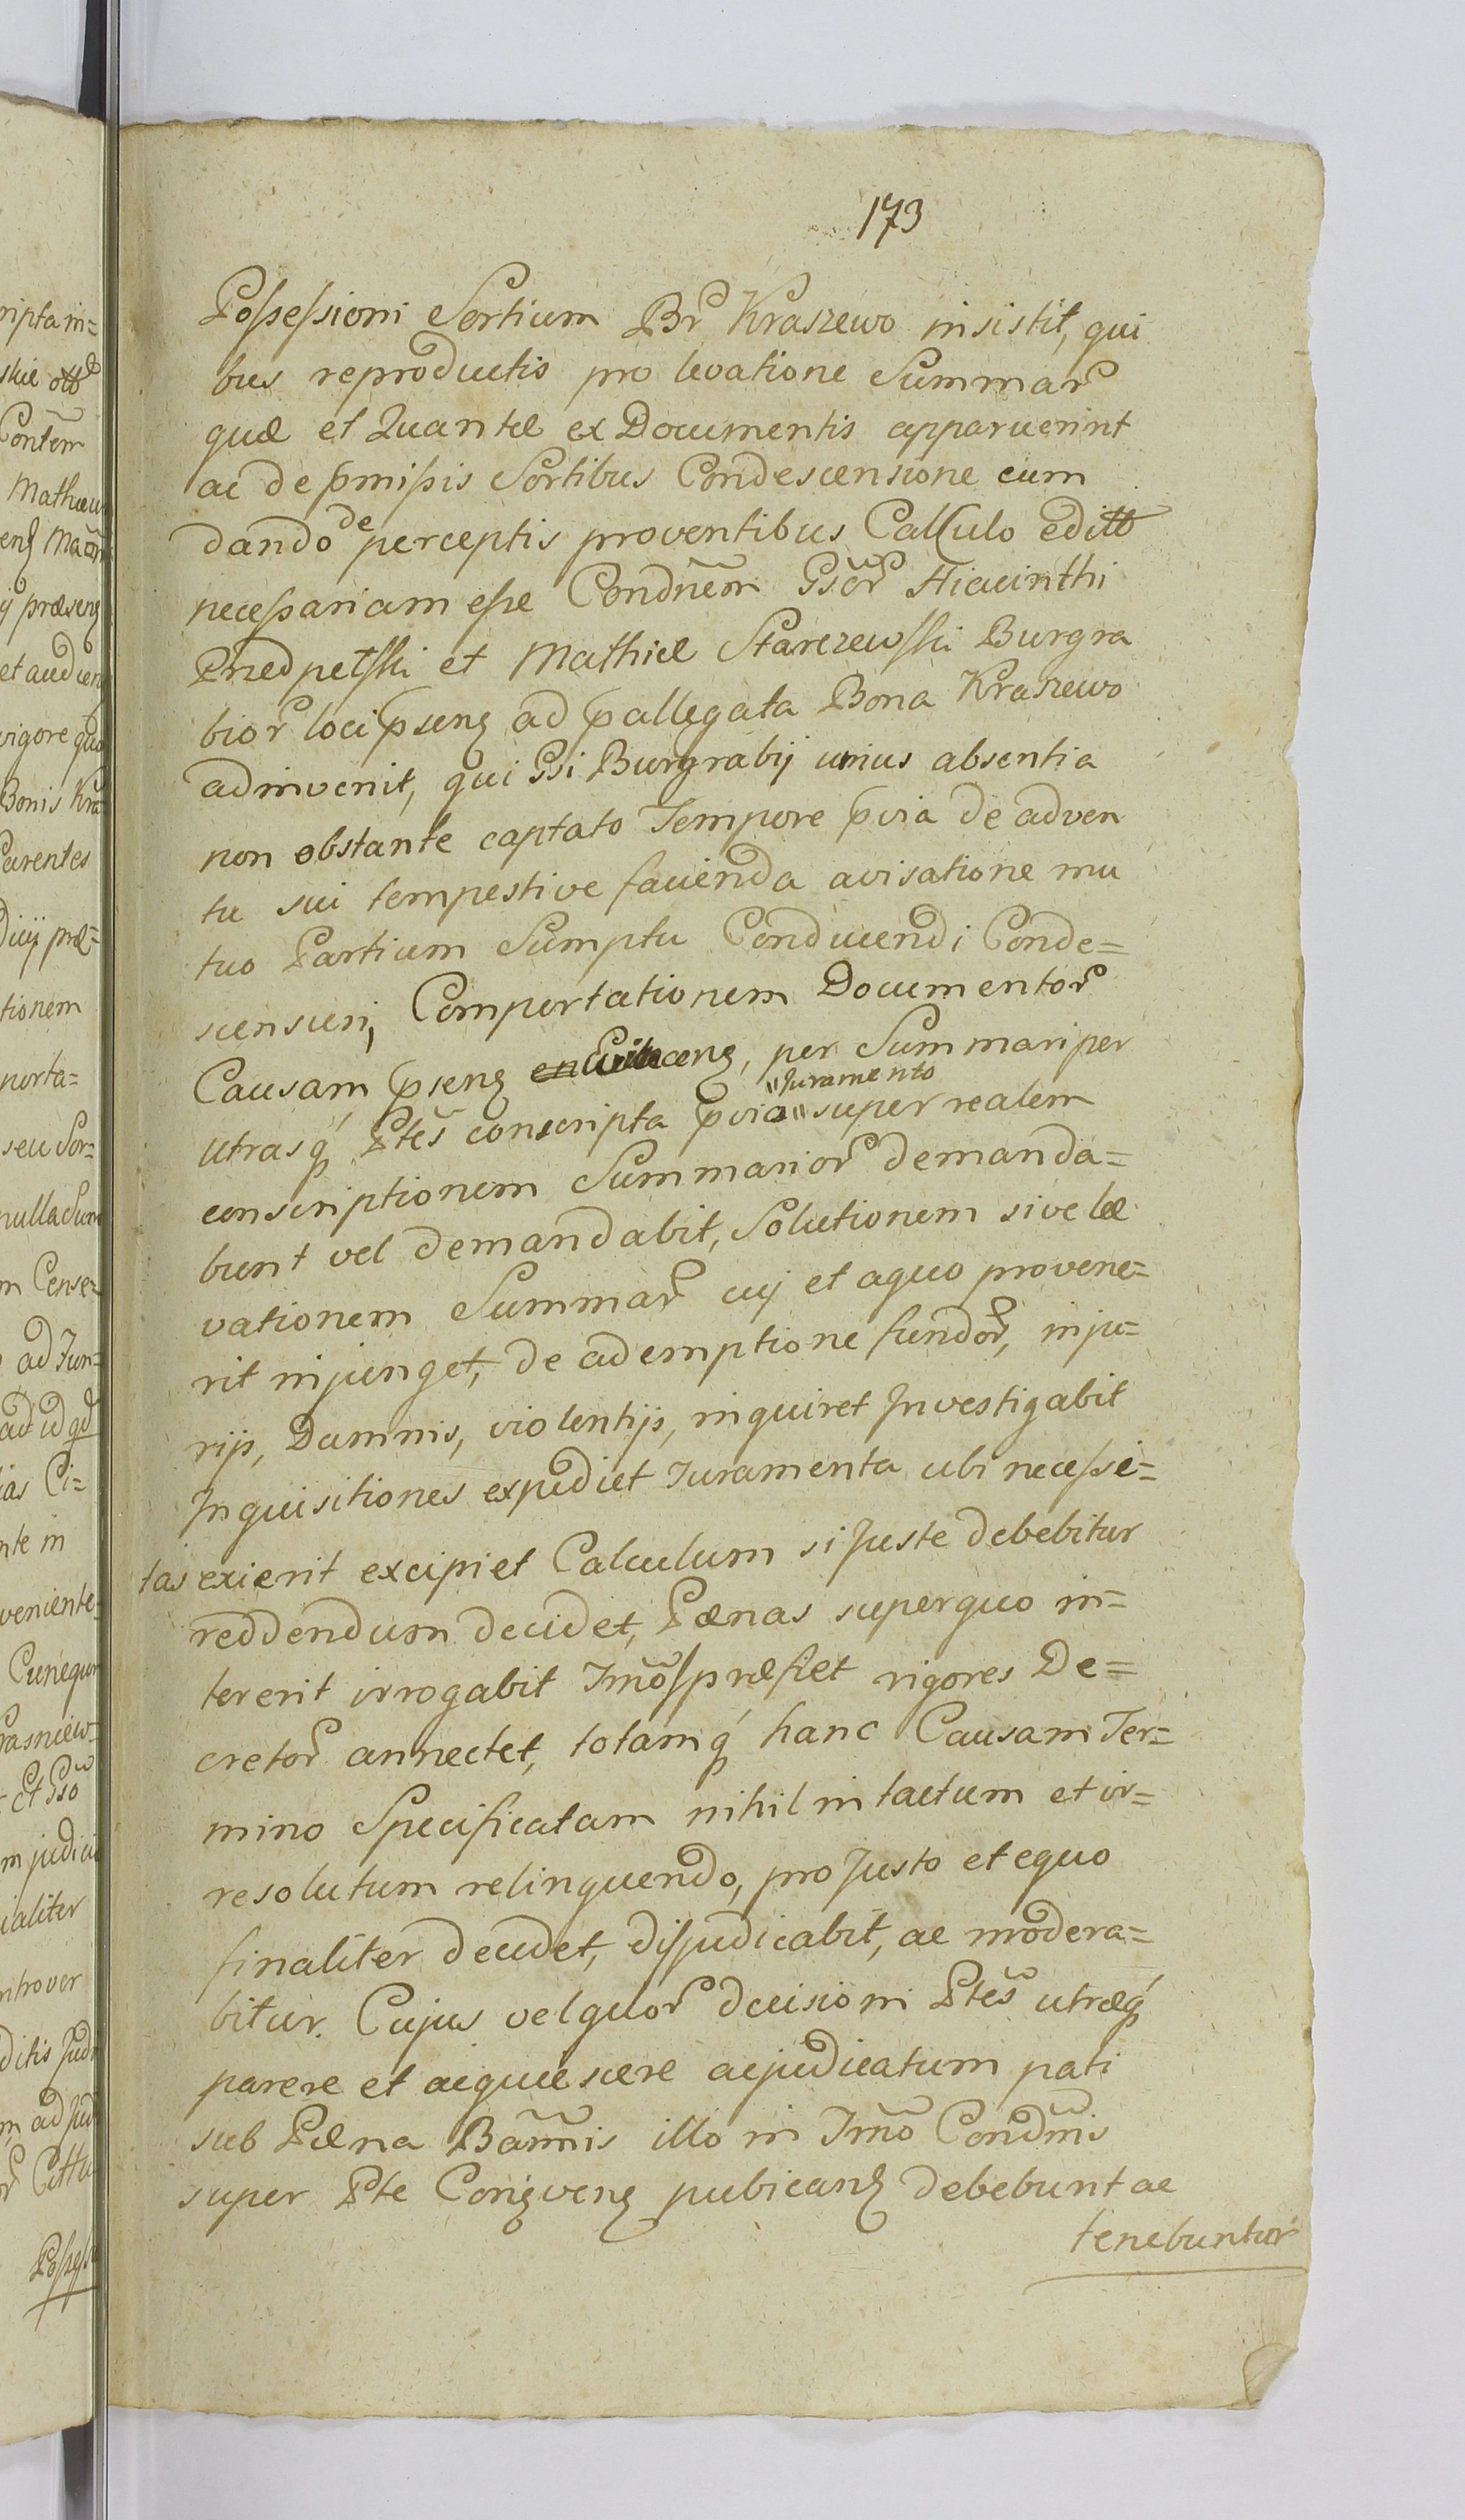 173
Possessioni Sortium Br Kraszewo insistit, qui
bus reproductis pro levatione Summar
quæ et Quantæ ex Documentis apparuerint
ac de pmissis Sortibus Condescensione cum
dando de perceptis proventibus Calculo editto
necessariam esse Condnem Gsor Hiacinthi
Przedpełski et Mathiæ Starczewski Burgra
bior loci psenz ad pallegata Bona Kraszewo
adinvenit, qui Gsi Burgrabij unius absentia
non obstante captato Tempore pvia de adven
tu sui tempestive facienda avisatione mu
tuo Partium Sumptu Conducendi Conde=
scensuri, Comportationem Documentor
Causam psenz, per Summari per
utrasq Ptes conscripta pvio "Juramento" super realem
conscriptionem Summarior demanda=
bunt vel demandabit, Solutionem sive læ
vationem Summar cuj et a quo provene=
rit injunget, de ademptione fundor, inju=
rijs, Damnis, violentijs, inquiret Investigabit
Inquisitiones expediet Juramenta ubi necessi=
tas exierit excipiet Calculum si Juste debebitur
reddendum decidet, Pænas super quo in=
tererit irrogabit Tmos præfiet rigores De=
cretor annectet, totamq hanc Causam Ter=
mino Specificatam nihil intactum et ir=
resolutum relinquendo, pro Justo et equo
finaliter decidet, disjudicabit, ac modera=
bitur. Cujus vel quor decisioni Ptes utræq
parere et acquiescere acjudicatum pati
sub Pæna Bannis illo in Tmo Condnis
super Pte Conzvenz pubicanz debebunt ac
tenebuntur